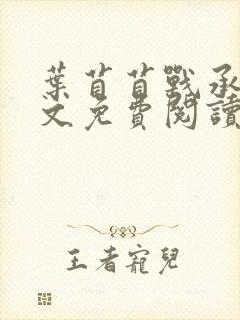 葉苜苜戰承
文免費閱讀
王者寵兒